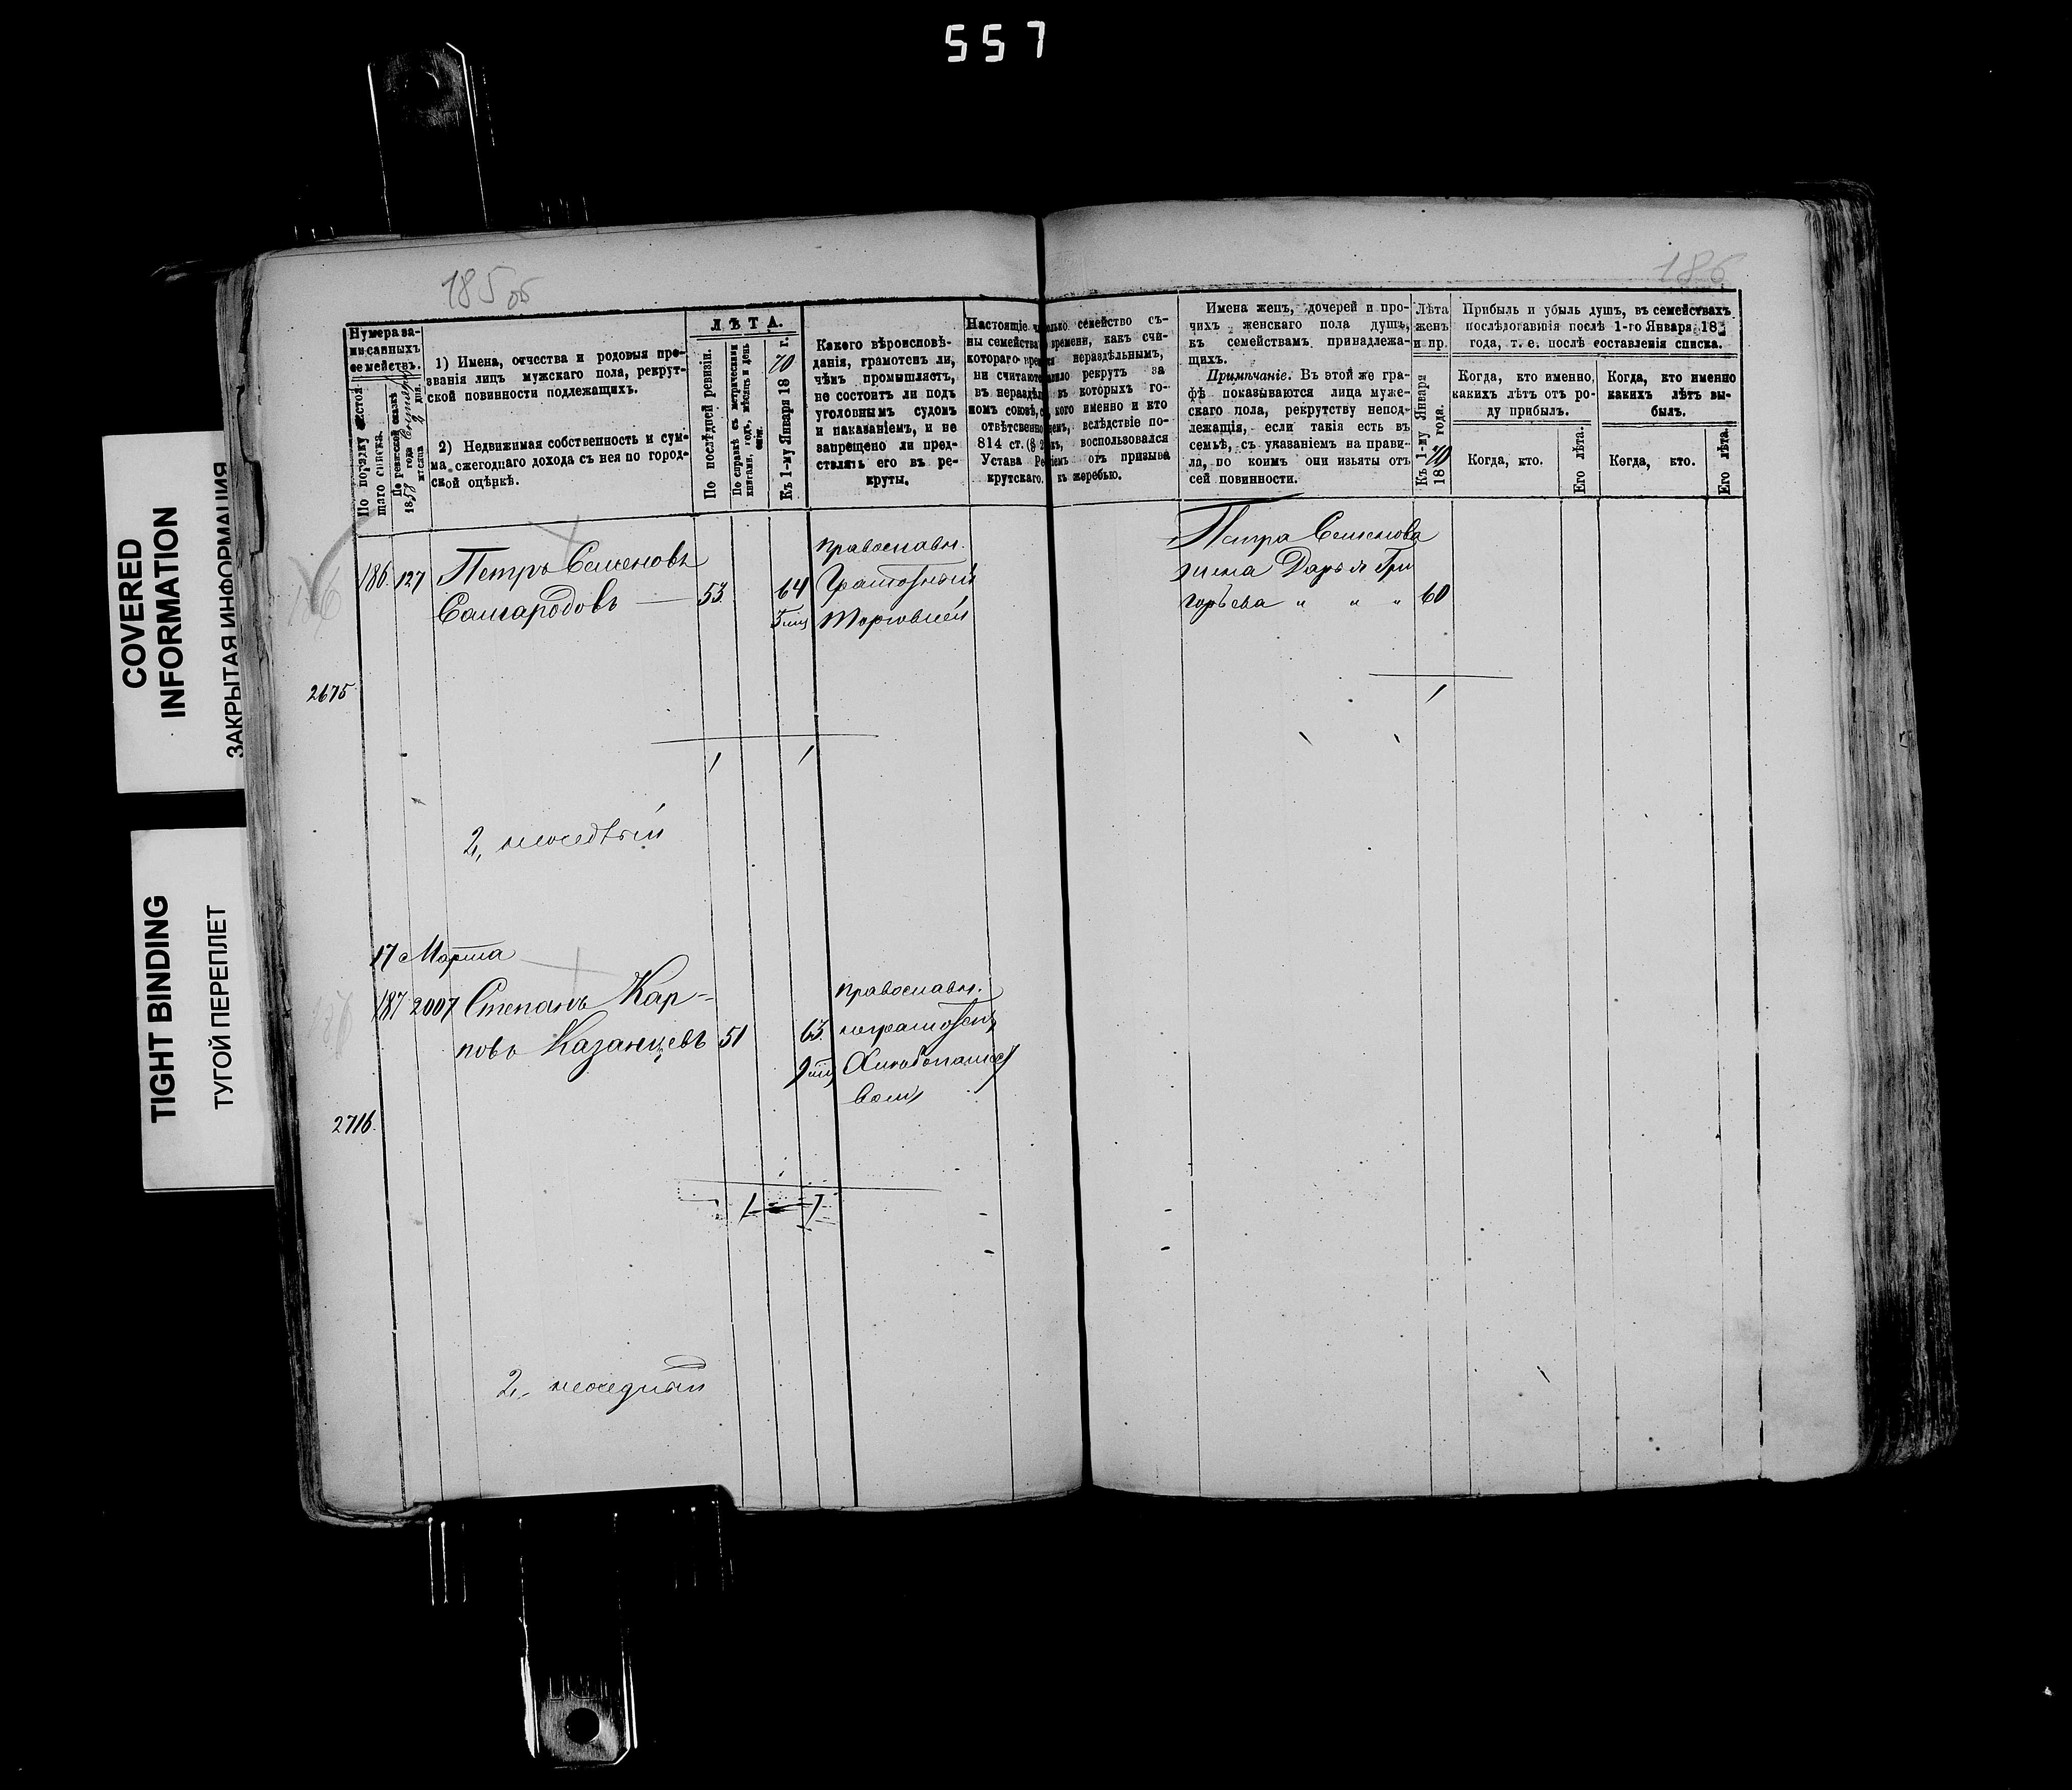 557
COVERED
INFORMATION
ЗАКРЫТАЯ ИНФОРМАЦИЯ
TIGHT BINDING
ТУГОЙ ПЕРЕПЛЕТ
185 об
186
Нумера за-
писанныхъ
семействъ.
По порядку настоя-
щаго списка.
По ревизской сказкѣ
1858 года
мѣсяца дня.
1) Имена, отчества и родовыя про-
званія лицъ мужскаго пола, рекрут-
ской повинности подлежащихъ.
2) Недвижимая собственность и сум-
ма ежегоднаго дохода съ нея по город-
ской оцѣнкѣ.
ЛѢТА.
По послѣдней ревизіи.
По справкѣ съ метрическими
книгами, годъ, мѣсяцъ и день
Къ 1-му Января 1870 г.
Какого вѣроисповѣ-
данія, грамотенъ ли,
чѣмъ промышляетъ,
не состоитъ ли подъ
уголовнымъ судомъ
и наказаніемъ, и не
запрещено ли пред-
ставлять его въ ре-
круты.
Настоящіе семейство съ-
ны семейства времени, какъ счи-
котораго нераздѣльнымъ,
ни считаютъ рекрутъ за
въ нераздѣл въ которыхъ го-
номъ союзѣ, кого именно и кто
отвѣтственно вслѣдствіе по-
814 ст. воспользовался
Устава Ре отъ призыва
крутскаго. къ жеребью.
Имена женъ, дочерей и про-
чихъ женскаго пола душъ,
къ семействамъ принадлежа-
щихъ.
Примѣчаніе. Въ этой же гра-
фѣ показываются лица муже-
скаго пола, рекрутству непод-
лежащія, если такія есть въ
семьѣ, съ указаніемъ на прави-
ла, по коимъ они изъяты отъ
сей повинности.
Лѣта
женъ
и пр.
Къ 1-му Января
1870 года.
Прибыль и убыль душъ, въ семействахъ
послѣдовавшія послѣ 1-го Января 18
года, т. е. послѣ составленія списка.
Когда, кто именно,
какихъ лѣтъ отъ ро-
ду прибылъ.
Когда, кто именно
какихъ лѣтъ вы-
былъ.
Когда, кто.
Его лѣта.
Когда, кто.
Его лѣта.
186 127 Петръ Семеновъ
Самародовъ — 53 64
5 мц
православн.
Грамотный
торговлей
Петра Семенова
жена Дарья Гри
горьева " " " 60
2675
1 1
1
2,
17 Марта
187 2007 Степанъ Кар-
повъ Казанцевъ 51 63
9 мц
православн.
неграмотенъ
Хлебопашес
вомъ
2716.
1 — 1
2,